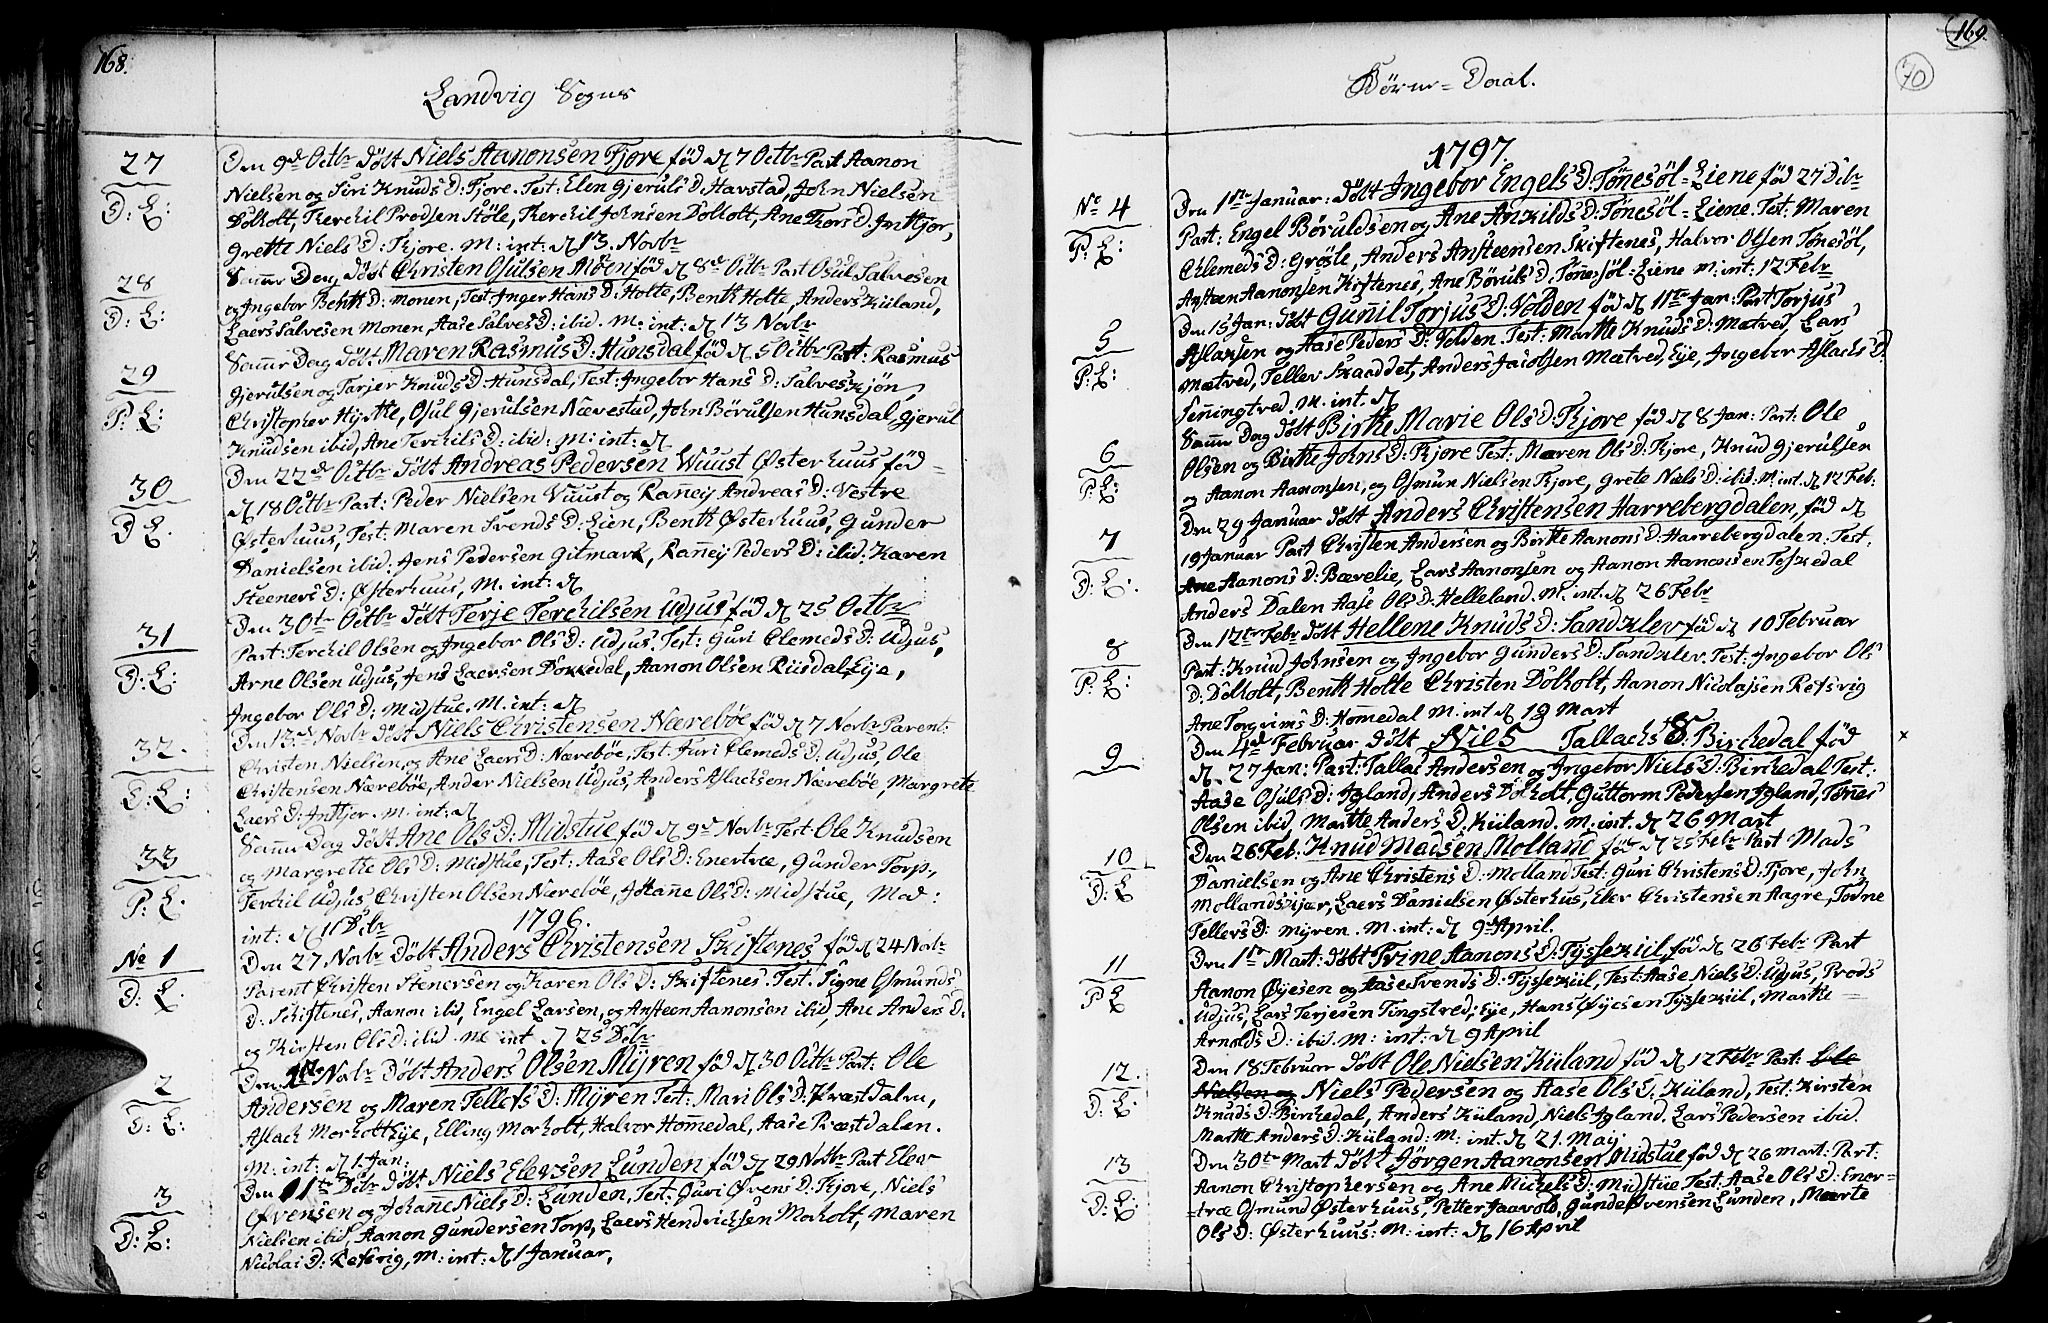 168.
Landvig Sogns
27
D: L:
Den 9de Octbr Döbt Niels Aanonsen Fjore föd d 7 Octbr Part Aanon
Nielsen og Siri Knuds D: Fjore. Test: Elen Gjeruls D: Havstad, John Nielsen
Dolholt, Terchil Prodsen Støle, Terchil Johnsen Dolholt, Ane Thors D: Inthjor,
Grette Niels D: Fjore. M: int: d 13. Novbr
28
D: L:
Samr Dag Döbt Christen Osulsen Moen föd d 8de Octbr Part Osul Salvesen
og Ingebor Benth D: Monen, Test Inger Hans D: Holte, Benth Holte, Anders Kiiland,
Laers Salvesen Monen, Aase Salves D: ibid. M: int: d 13 Novbr
29
P: L:
Samr Dag Döbt. Maren Rasmus D: Hunsdal föd d 5 Octbr Part: Rasmus
Gjerulsen og Tarjer Knuds D: Hunsdal, Test: Ingebor Hans D: Salveskjøn,
Christopher Hyrtte, Osul Gjerulsen Nævestad, John Börulsen Hunsdal, Gjerul
Knudsen ibid, Ane Terchils D: ibid: M: int: d
30
D: L:
Den 22de Octbr Döbt Andreas Pedersen Wuust Østerhuus föd
d 18 Octbr Part: Peder Nielsen Vuust og Ranney Andreas D: Vestre
Østerhuus, Test: Maren Svends D: Lien, Benth Østerhuus, Gunder
Danielsen ibid: Jens Pedersen Gitmark, Ranney Peders D: ibid: Karen
Steeners D: Østerhuus, M. int: d
31
D: L:
Den 30te Octbr Döbt Terje Terchilsen Udjus föd d 25 Octbr
Part: Terchil Olsen og Ingebor Ols D: Udjus, Test: Guri Clemeds D: Udjus,
Arne Olsen Udjus, Jens Laersen Dokkedal, Aanon Olsen Riisdal, Eje,
Ingebor Ols D: Midstue. M. int: d
32.
D: L:
Den 13de Novbr Döbt Niels Christensen Nærebøe föd d 7 Novbr Parent:
Christen Nielsen, og Ane Laers D: Nærebøe, Test: Siri Clemeds D: Udjus, Ole
Christensen Nærebøe, Ander Nielsen Udjus, Anders Aslachsen Nærebøe, Margrete
Laers D: Inthjor. M: int: d
33
P: L.
Samr Dag Döbt Ane Ols D: Midstue föd d 9de Novbr Test: Ole Knudsen
og Margrethe Ols D: Midstue, Test: Aase Ols D: Enertræ, Gunder Torp,
Terchil Udjus, Christen Olsen Næreböe, Johanne Ols D: Midstue, Mod:
int: d 11 Dcbr
1796.
No 1
D: L.
Den 27 Novbr Döbt Anders Christensen Skiftenes föd d 24 Novbr
Parent Christen Stenersen og Karen Ols D: Skiftenes. Test: Signe Osmunds
D: Schiftenes, Aanon ibid, Engel Larsen, og Ansteen Aanonsen ibid, Ane Anders D.
og Kirsten Ols D: ibid. M: int d 25 Dcbr.
2
D: L:
Den Novbr Döbt Anders Olsen Myren föd d 30 Octbr Part: Ole
Andersen og Maren Tellefs D: Myren Test: Mari Ols D: Præstdalen,
Aslach Morholt Eje, Elling Morholt, Halvor Hommedal, Aase Præstdalen.
M: int: d 1. Jan:
3
D: L:
Den 11te Dcbr Döbt Niels Elevsen Lunden föd d 29 Novbr Part Elev
Øfvensen og Johanne Niels D: Lunden, Test: Guri Øvens D: Fjore, Niels
Nielsen ibid, Aanon Gundersen Torp, Laers Hendrichsen Morholt, Maren
Nicolai D: Refsvig, M: int: d 1 Januar,
169.
70
Börne=Daab.
1797.
No 4
P: L:
Den 1ste Januar: Döbt Ingebor Engels D: Tönesöl=Liene föd 27 Dcbr
Part: Engel Böruldsen og Ane Ankilds D: Tönesöl=Liene. Test: Maren
Chlemeds D: Gröste, Anders Ansteensen Skiftenes, Halvor Olsen Tönesöl,
Ansteen Aanonsen Kiftenes, Ane Böruls D: Tönesöl=Liene M: int: 12 Febr
5
P: L:
Den 15 Jan: Döbt Gunnil Torjus D: Volden föd d 11te Jan: Part: Torjus
Aslaksen og Aase Peders D: Volden. Test: Marthe Knuds D: Mætved, Lars
Mætved, Tellev Skaaddet, Anders Jacobsen Mætved, Eje, Ingebor Aslachs D.
Senningtved. M. int: d
6
P: L:
Samr Dag Döbt Birthe Marie Ols D: Fjore föd d 8 Jan: Part: Ole
Olsen og Birthe Johns D: Fjore Test: Maren Ols D: Fjore, Knud Gjerulsen
og Aanon Aanonsen, og Osmun Nielsen Fjore, Grete Niels D: ibid: M. int. d 12 Feb:
7
D: L.
Den 29 Januar Döbt Anders Christensen Harrebergdalen, föd d
19 Januar Part Christen Andersen og Birthe Aanons D: Harrebergdalen. Test:
Ane Aanons D: Bærelie, Lars Aanonsen og Aanon Aanonsen Toskedal
Anders Dalen Aase Ols D: Helleland. M. int: d 26 Febr
8
P: L:
Den 12te Febr Döbt Hellene Knuds D: Landklev föd d 10 Februar
Part: Knud Johnsen og Ingebor Gunders D: Landklev. Test: Ingebor Ols
D: Dolholt, Benth Holte Christen Dolholt, Aanon Nicolajsen Refsvig
Ane Torgrims D: Hommedal M. int d 19 Mart
9
Den 4de Februar Döbt Niels Tallachs S: Birchedal föd
d. 27 Jan: Part: Tallac Andersen og Ingebor Niels D: Birchedal Test:
Aase Osuls D: Igland, Anders Dolholt, Guttorm Pedersen Igland, Tönnes
Olsen ibid, Marthe Anders D: Kiiland. M. int: d 26 Mart
x
10
D: L
Den 26 Feb: Knud Madsen Molland föd d 25 Febr Part Mads
Danielsen og Ane Christens D: Molland Test: Guri Christens D: Fjore, John
Mollandskjær, Laers Danielsen Østerhus, Eler Christensen Aagre, Todne
Tellevs D: Myren. M. int: d 9de April.
11
P: L
Den 1ste Mart: Döbt Trine Aanons D: Tyssekiil, föd d 26 Febr Part
Aanon Øyesen og Aase Svends D: Tyssekiil, Test: Aase Niels D: Udjus, Prods
Udjus, Lars Terjesen Tingstved, Eje, Hans Øyesen Tyssekiil, Marthe
Arnolds D: ibid. M: int: d 9 April
12.
D: L.
Den 18 Februar Döbt Ole Nielsen Kiiland föd d 12 Febr Part: Ole
Nielsen og Niels Pedersen og Aase Ols D: Kiiland, Test: Kirsten
Knuds D: Birchedal, Anders Kiiland, Niels Igland. Lars Pedersen ibid.
Marthe Anders D: Kiiland: M: int: d 21. Maij.
13
D: L:
Den 30te Mart Döbt Jörgen Aanonsen Midstue föd d 26 Mart: Part:
Aanon Christophersen og Ane Michels D: Midstue Test: Aase Ols D: Ener-
træ Osmund Østerhuus, Petter Jaavold, Gunde Øvensen Lunden, Marte
Ols D: Østerhuus: M: int: d 16 April